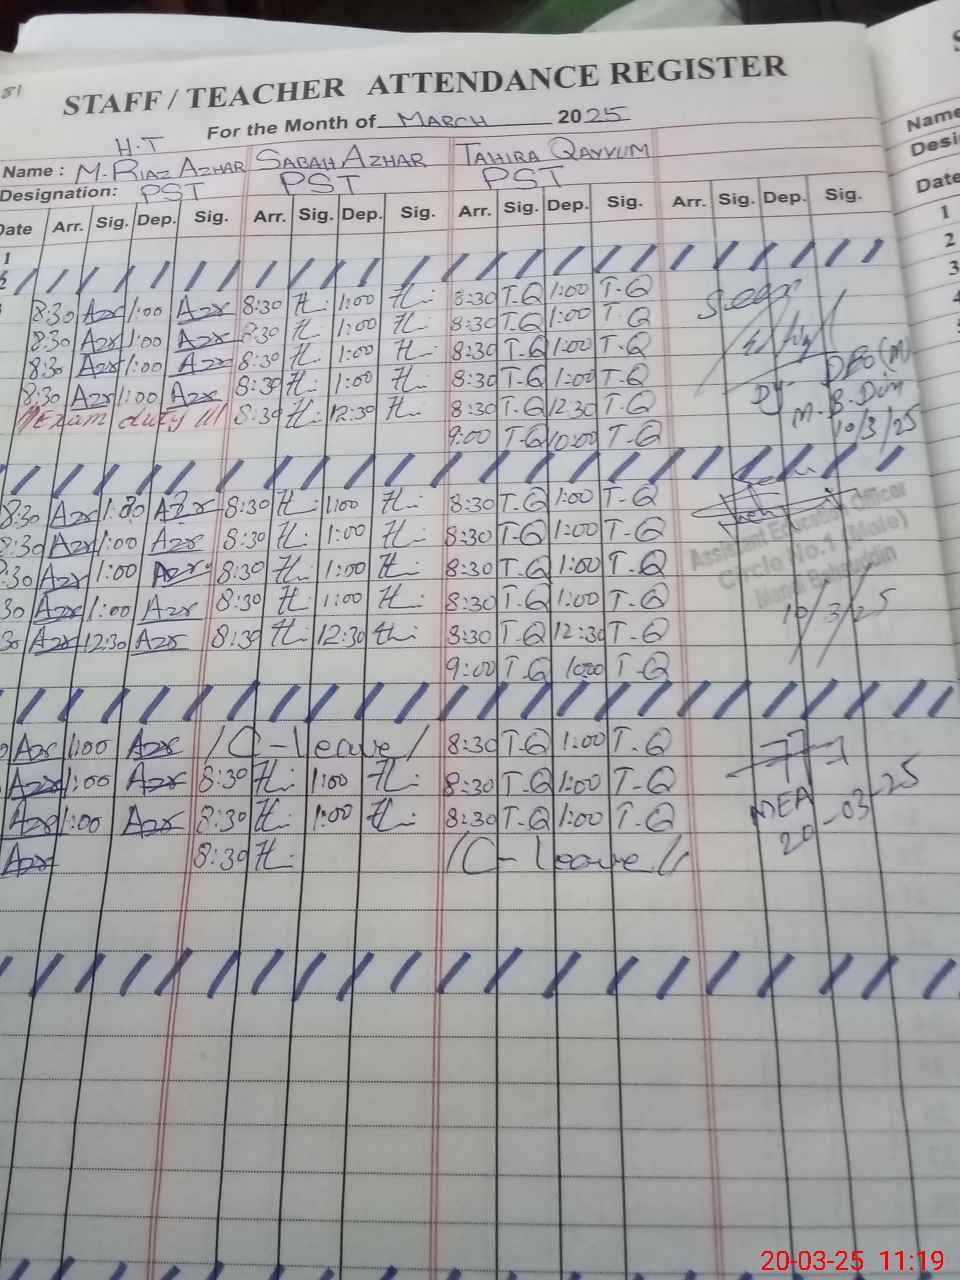 81
STAFF / TEACHER ATTENDANCE REGISTER
For the Month of MARCH 2025
H.T
Name : M. RIAZ AZHAR SABAH AZHAR TAHIRA QAYYUM Name
Designation: PST PST PST Desi
Date Arr. Sig. Dep. Sig. Arr. Sig. Dep. Sig. Arr. Sig. Dep. Sig. Arr. Sig. Dep. Sig. Date
1 1
2 2
3
8:30 Azr 1:00 Azr 8:30 1:00 8:30 T-Q 1:00 T-Q
8:30 Azr 1:00 Azr 8:30 1:00 8:30 T-Q 1:00 T-Q
8:30 Azr 1:00 Azr 8:30 1:00 8:30 T-Q 1:00 T-Q
8:30 Azr 1:00 Azr 8:30 1:00 8:30 T-Q 1:00 T-Q
Exam duty 8:30 12:30 8:30 T-Q 12:30 T-Q
9:00 T-Q 10:00 T-Q
Dy DEO (M)
M. B. Din
10/3/25
8:30 Azr 1:00 Azr 8:30 1:00 8:30 T-Q 1:00 T-Q
8:30 Azr 1:00 Azr 8:30 1:00 8:30 T-Q 1:00 T-Q
:30 Azr 1:00 Azr 8:30 1:00 8:30 T-Q 1:00 T-Q
30 Azr 1:00 Azr 8:30 1:00 8:30 T-Q 1:00 T-Q
30 Azr 12:30 Azr 8:30 12:30 8:30 T-Q 12:30 T-Q
9:00 T-Q 10:00 T-Q
Assistant Education Officer
Circle No.1 (Male)
Mandi Bahauddin
19/3/25
Azr 1:00 Azr C-leave 8:30 T-Q 1:00 T-Q
Azr 1:00 Azr 8:30 1:00 8:30 T-Q 1:00 T-Q
Azr 1:00 Azr 8:30 1:00 8:30 T-Q 1:00 T-Q
Azr 8:30 C-leave
MEA
20-03-25
20-03-25 11:19